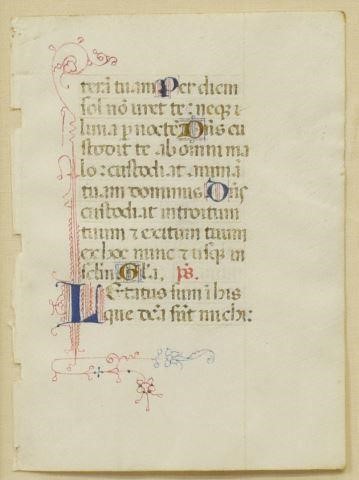 tera tuam Per diem
sol nō uret te: neqȝ ⁊
luna p nocte Dñs cu
stodit te ab omni ma
lo: custodiat animā
tuam dominus Dñs
custodiat introitum
tuum ⁊ exitum tuum
ex hoc nunc ⁊ usqȝ in
seclm̄ Gl̄a, ps.
LEtatus sum ī his
que dc̄a sūt michi: